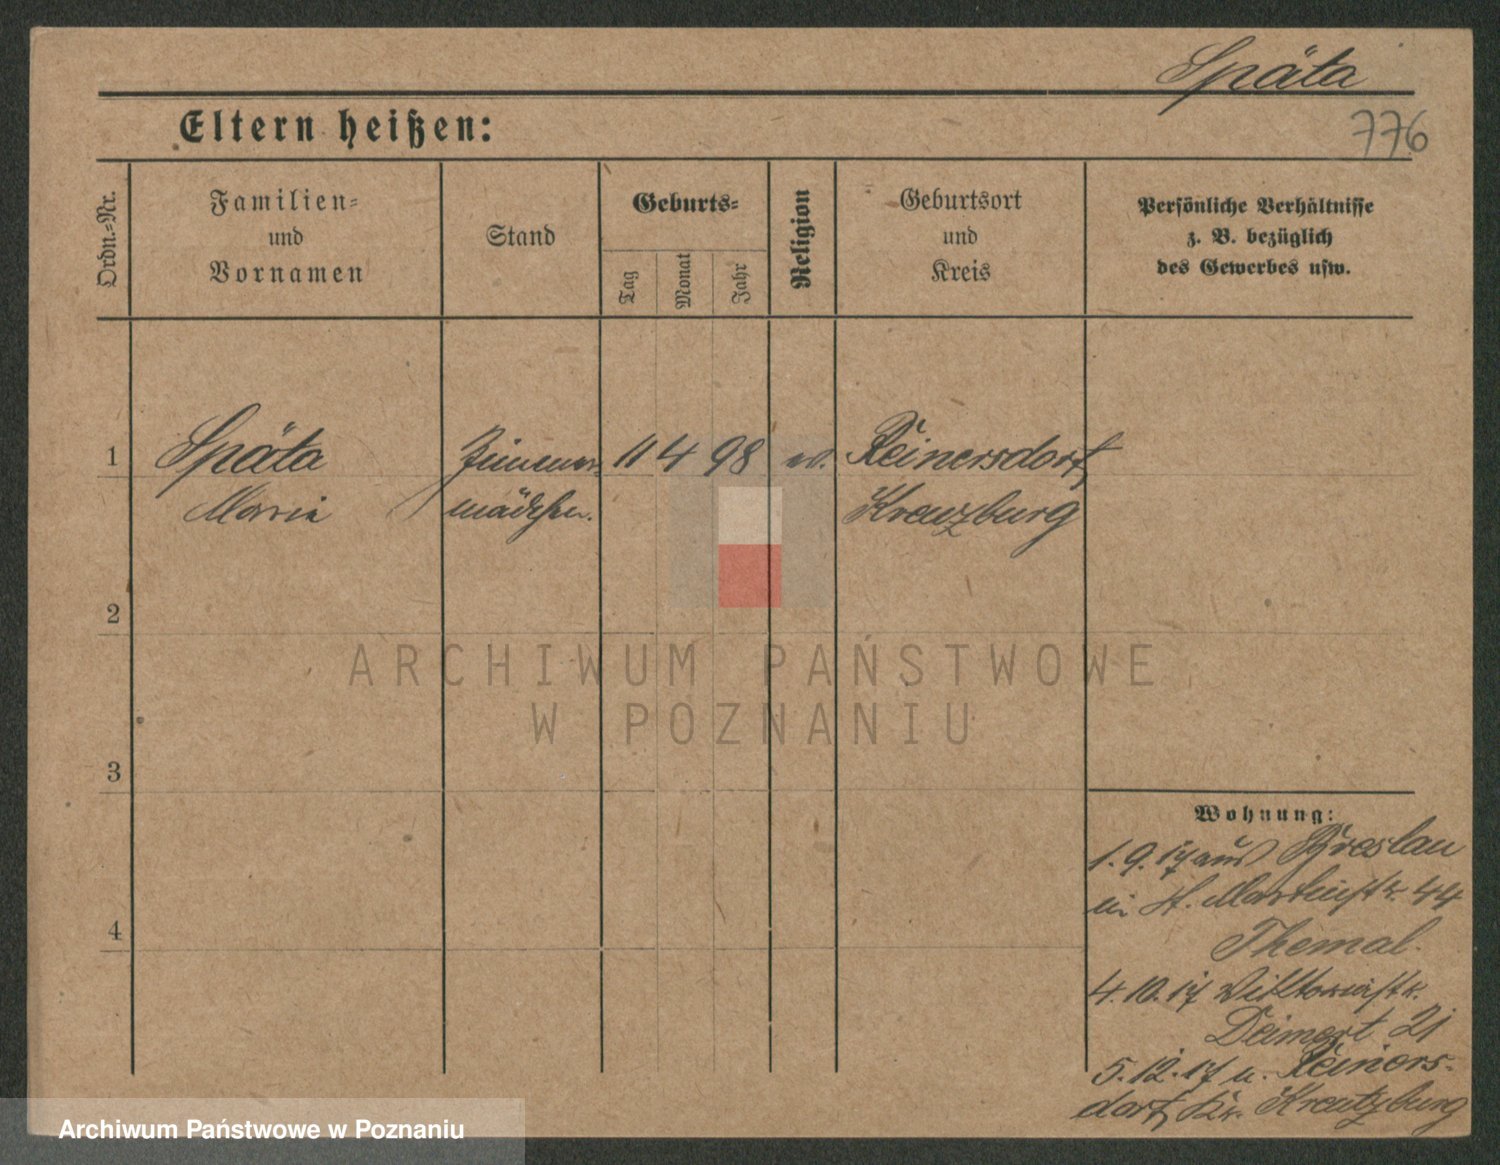 Späta
776
Eltern heißen:
Ordn.-Nr.
Familien-
und
Vornamen
Stand
Geburts-
Tag
Monat
Jahr
Religion
Geburtsort
und
Kreis
Persönliche Verhältnisse
z. B. bezüglich
des Gewerbes usw.
1
Späta
Maria
Zimmer-
mädchen.
11 4 98
ev.
Reinersdorf
Kreuzburg
2
3
4
Wohnung:
1. 9. 17 aus Breslau
in St. Martinstr. 44
Themal.
4. 10. 17 Viktoriastr.
Deimert 21
5. 12. 17 n. Reiners-
dorf, Kr. Kreutzburg
ARCHIWUM PAŃSTWOWE
W POZNANIU
Archiwum Państwowe w Poznaniu